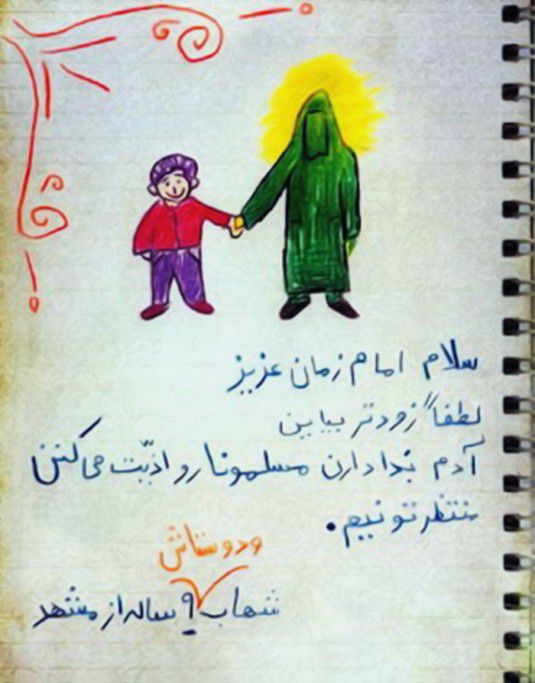 سلام امام زمان عزیز
لطفاً زودتر بیاین
آدم بدا دارن مسلمونا رو اذیّت می کنن
منتظرتونیم.
ودوستاش
شهاب ۹ ساله از مشهد